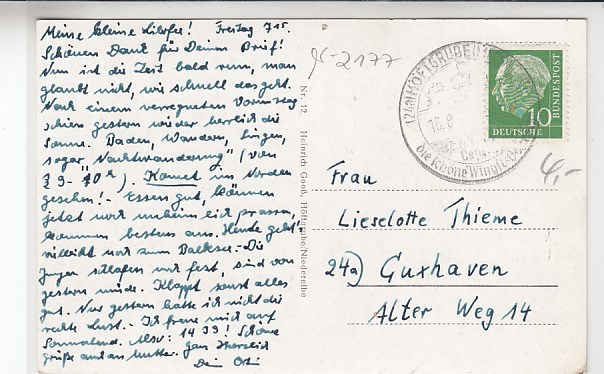 Meine kleine Liesel! Freitag 7 15.
Schönen Dank für Deinen Brief!
Nun ist die Zeit bald rum, man
glaubt nicht, wie schnell das geht.
Nach einem verregneten Vormittag
schien gestern wieder herrlich die
Sonne. Baden, Wandern, Singen,
sogar "Nachtwanderung" (von
½ 9 - 10 h). Komet im Norden
gesehen! - Essen gut, können
jetzt noch unheimlich prassen,
kommen bestens aus. Heute geht's
vielleicht noch zum Balksee. - Die
Jungen schlafen noch fest, sind von
gestern müde. Klappt sonst alles
gut. Nur gestern hatte ich nicht die
rechte Lust. - Ich freue mich auf
Sonnabend. Also: 14 33! Schöne
Grüße auch an Mutter. Ganz herzlich
Dein
Nr. 12 Heinrich Gooß, Höftgrube/Niederelbe
2177
(24a) HÖFTGRUBE
16.8
die Krone
BUNDESPOST
10
DEUTSCHE
4,-
Frau
Lieselotte Thieme
24a) Cuxhaven
Alter Weg 14